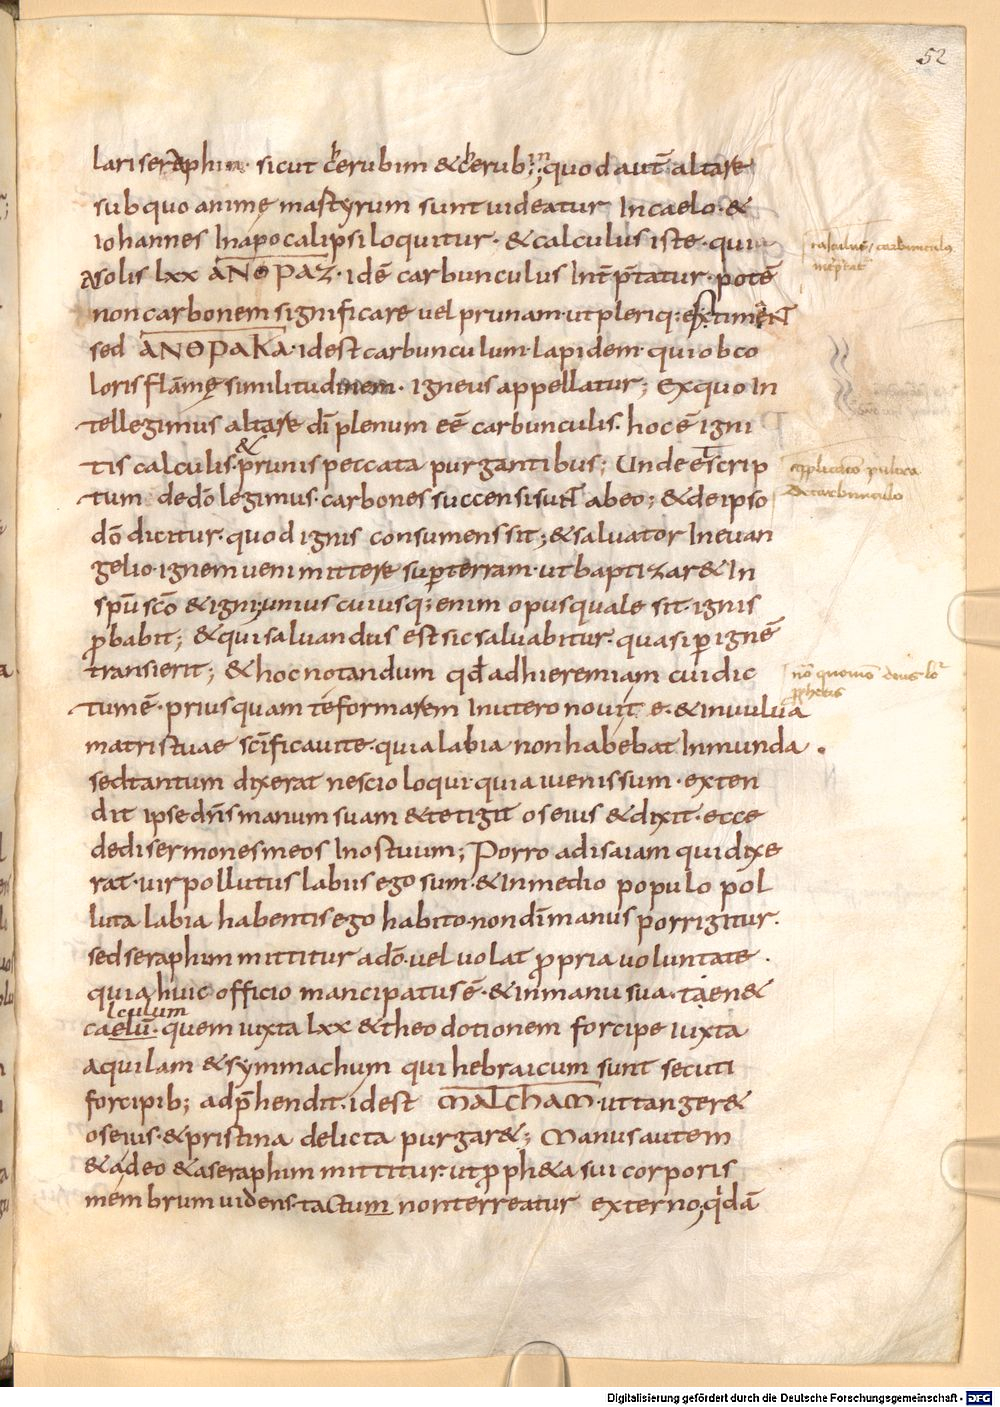 52
lari seraphin· sicut cherubim & cherubin; quod aut̄ altare
sub quo animę martyrum sunt uideatur In caelo· &
Iohannes In apocalipsi loquitur· & calculus iste· qui
a solis lxx ANΘPAZ· idē carbunculus Int̄p̄tatur· potē
non carbonem significare uel prunam· ut pleriq; extimeNT
sed ANΘPAKA· id est carbunculum· lapidem· qui ob co
loris flāmę similitudinem· Igneus appellatur; Ex quo In
tellegimus altare dī plenum eē carbunculis. hoc ē igni
tis calculis· & prunis peccata purgantibus; Unde et scrip
tum de dō legimus· carbones succensi suNT ab eo; & de ipso
dō dicitur· quod ignis consumens sit; & saluator In euan
gelio· ignem ueni mittere sup̄ terram· ut baptizar& In
spū scō & igni; unius cuiusq; enim opus quale sit· ignis
p̄babit; & qui saluandus est sic saluabitur· quasi p̄ ignē
transierit; & hoc notandum qđ ad hieremiam cui dic
tum ē· priusquam te formarem In utero noui te· & In uulua
matris tuae sc̄ificaui te· quia labia non habebat Inmunda·
sed tantum dixerat nescio loqui· quia iuenis sum· exten
dit ipse dn̄s manum suam & tetigit os eius & dixit· ecce
dedi sermones meos In os tuum; Porro ad isaiam qui dixe
rat· uir pollutus labiis ego sum· & In medio populo pol
luta labia habentis ego habito· non dī manus porrigitur·
sed seraphim mittitur a dō· uel uolat p̄pria uoluntate·
quia huic officio mancipatus ē· & in manu sua· ten&
lculum
caelū· quem iuxta lxx & theodotionem forcipe iuxta
aquilam & symmachum qui hebraicum sunt secuti
forcipib; adp̄hendit· id est MALCHAM· ut tanger&
os eius· & pristina delicta purgar&; Manus autem
& a deo & a seraphim mittitur· ut p̄ph&a sui corporis
membrum uidens· tactum non terreatur externo; q̄dā
calculus / carbunculus
int̄p̄tat̄
de carbunculo
Digitalisierung gefördert durch die Deutsche Forschungsgemeinschaft - DFG